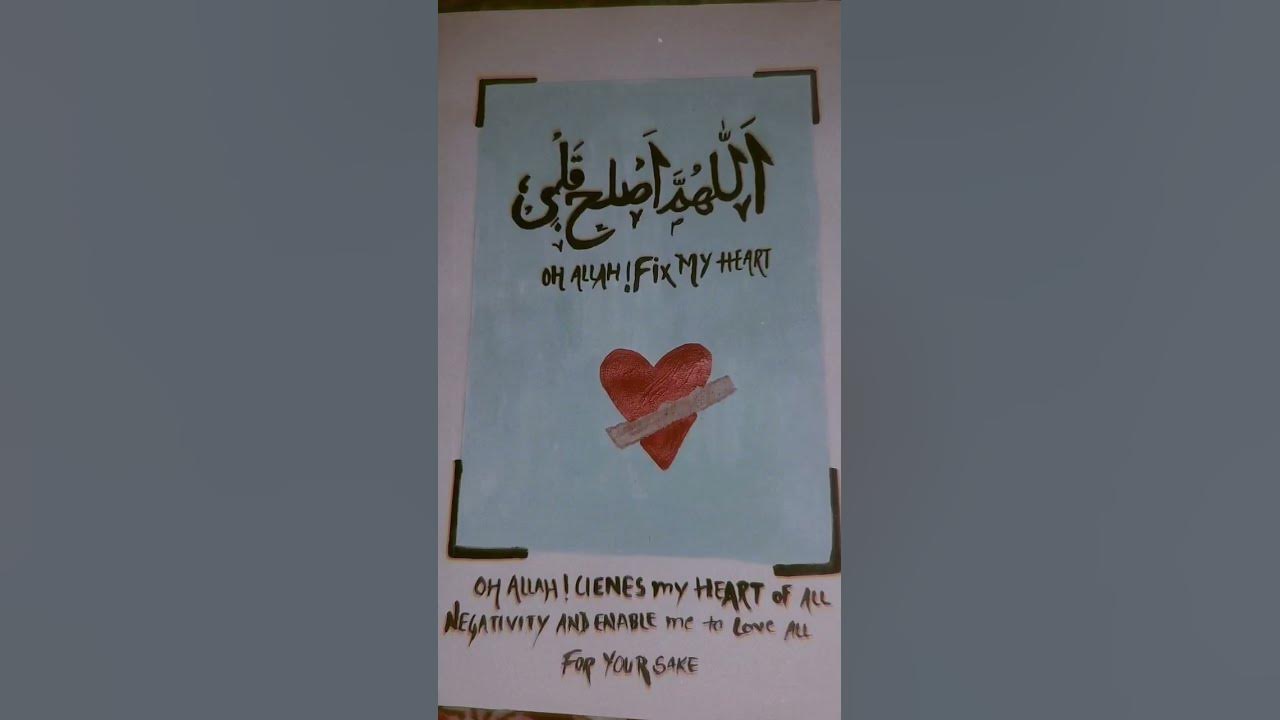 اَللّٰهُمَّ اَصْلِح قَلْبِىْ
OH ALLAH! Fix MY HEART
OH ALLAH! CIENES my HEART OF ALL
NEGATIVITY AND ENABLE me to Love ALL
FOR YOUR SAKE